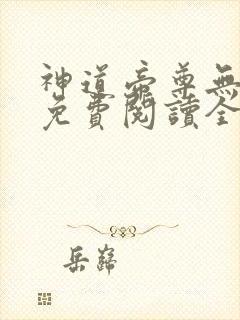 神道帝尊無
免費閱讀全
岳歸